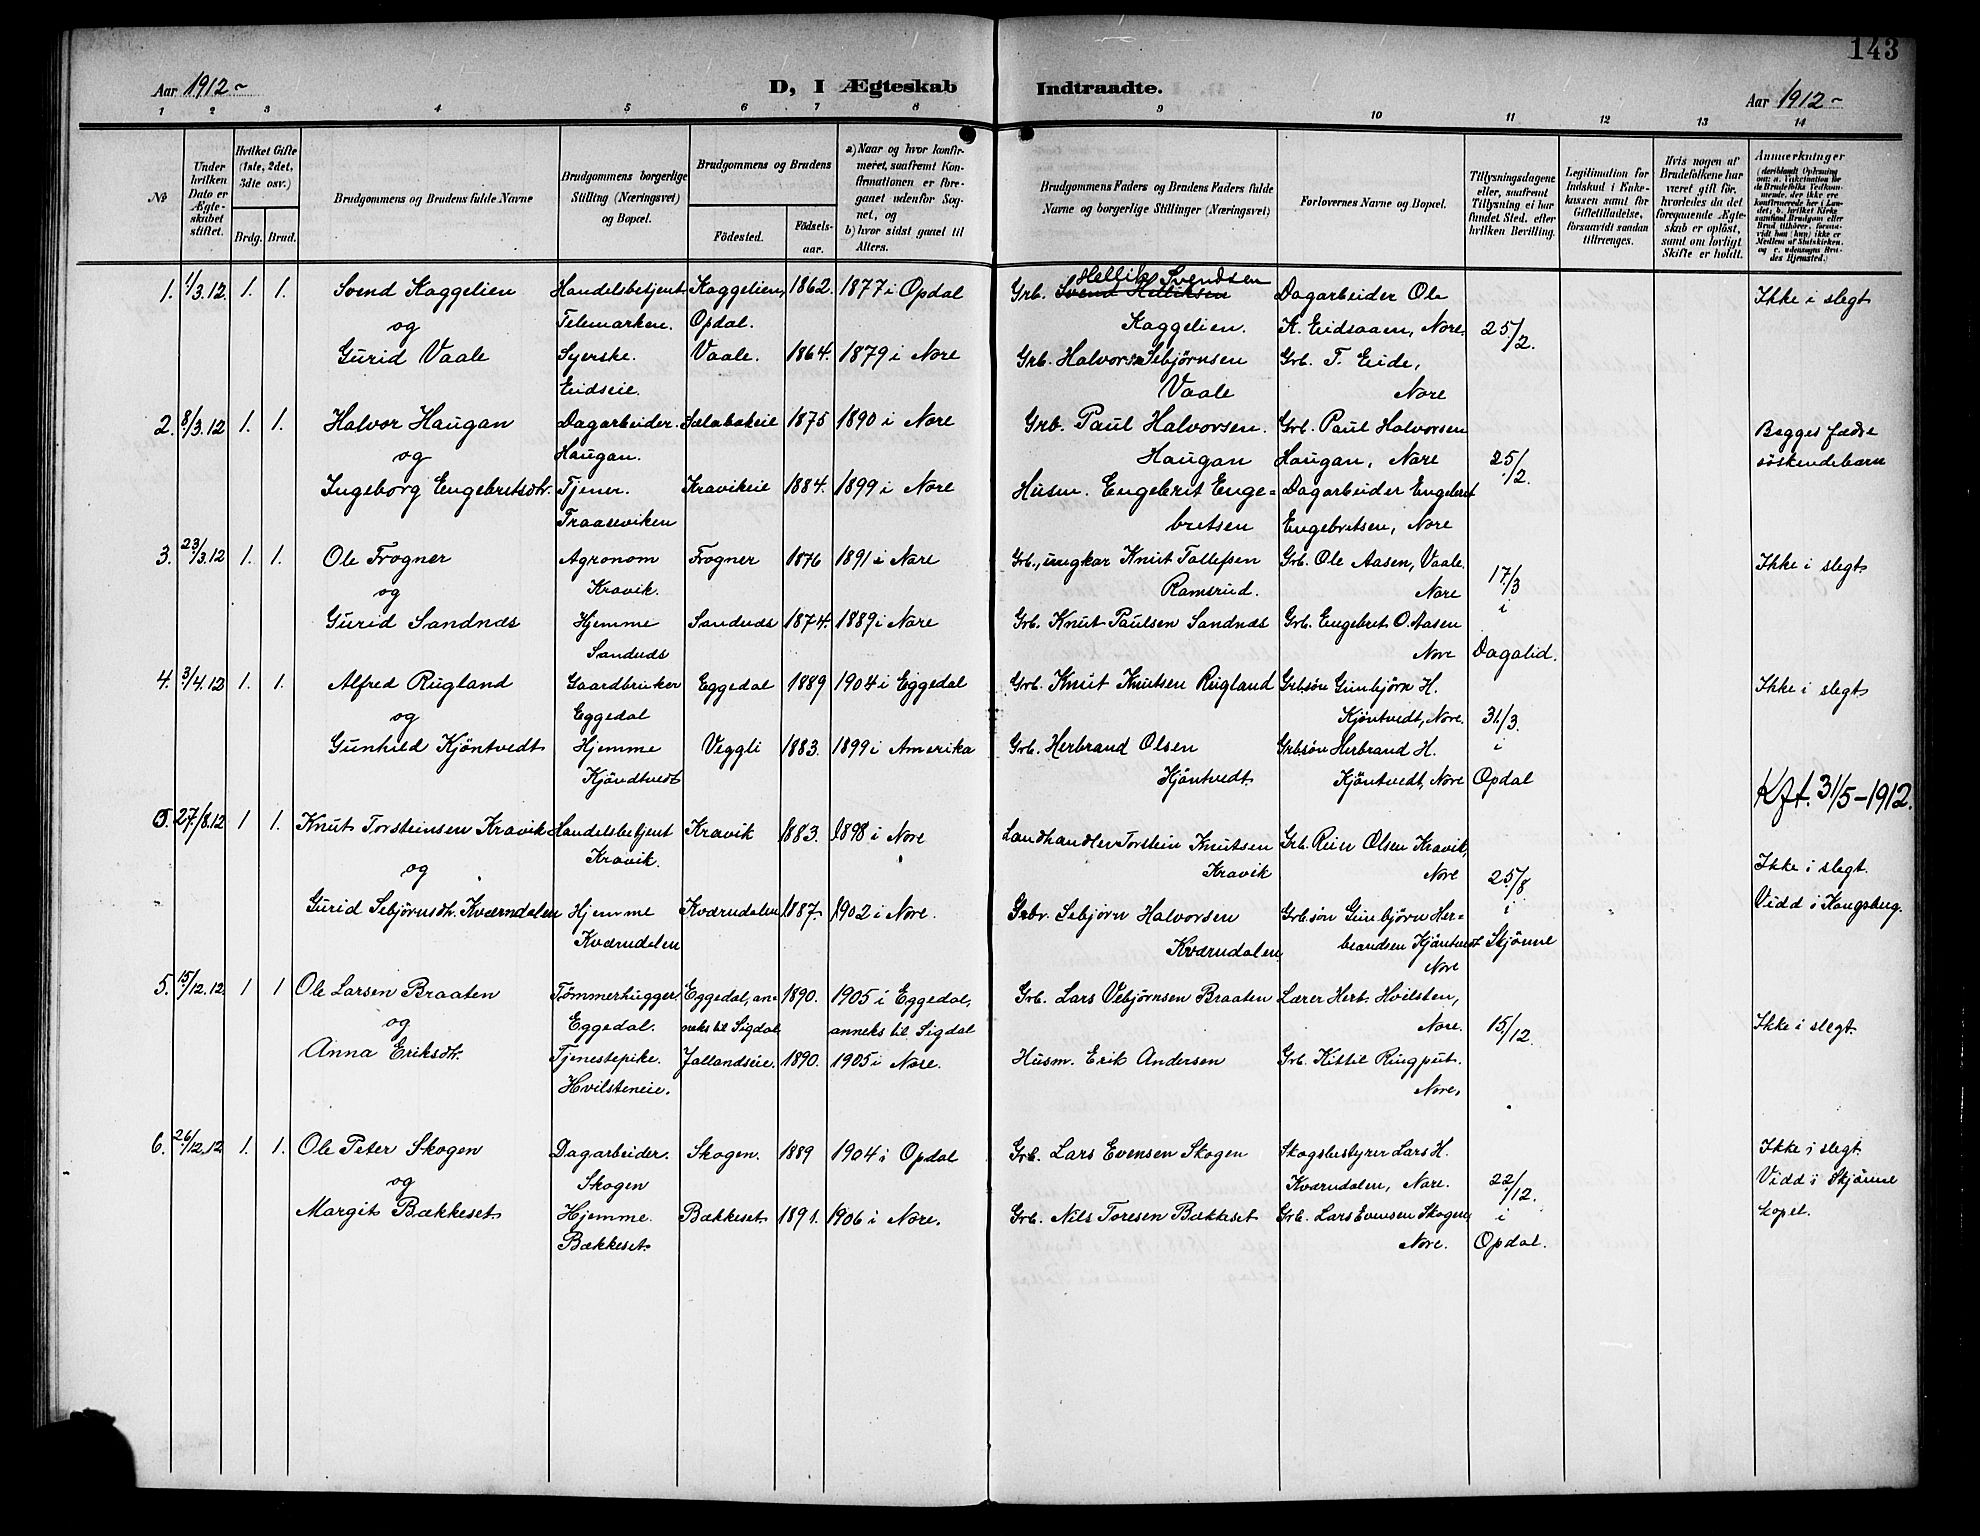 143
Aar 1912 -
D, I Ægteskab Indtraadte.
Aar 1912 -
1 2 3 4 5 6 7 8 9 10 11 12 13 14
No
Under hvilken Dato er Ægteskabet stiftet.
Hvilket Gifte (1ste, 2det, 3die osv.)
Brdg. Brud.
Brudgommens og Brudens fulde Navne
Brudgommens borgerlige Stilling (Næringsvei) og Bopæl.
Brudgommens og Brudens
Födested.
Födselsaar.
a) Naar og hvor konfirmeret, saafremt Konfirmationen er foregaaet udenfor Sognet, og
b) hvor sidst gaaet til Alters.
Brudgommens Faders og Brudens Faders fulde Navne og borgerlige Stillinger (Næringsvei)
Forlovernes Navne og Bopæl.
Tillysningsdagene eller, saafremt Tillysning ei har fundet Sted, efter hvilken Bevilling.
Legitimation for Indskud i Enkekassen samt for Giftetilladelse, forsaavidt saadan tiltrænges.
Hvis nogen af Brudefolkene har været gift för, hvorledes da det foregaaende Ægteskab er oplöst, samt om lovligt Skifte er holdt.
Anmerkninger
1. 1/3.12. 1. 1. Svend Kaggelien Handelsbetjent Kaggelien, 1862. 1877 i Opdal Grb. Svend Helliksen Hellik Svendsen Dagarbeider Ole Ikke i slegt
og Telemarken. Opdal. Kaggelien. K. Eidsaaen, Nore. 25/2.
Gurid Vaale Syerske. Vaale. 1864. 1879 i Nore Grb. Halvor Sebjørnsen Grb. T. Eide,
Eidseie. Vaale Nore
2. 8/3.12 1. 1. Halvor Haugan Dagarbeider. 1875 1890 i Nore Grb. Paul Halvorsen. Grb. Paul Halvorsen Begges fædre
og Haugan. Haugan Haugan, Nore 25/2. söskendebarn
Ingeborg Engebretsdtr. Tjener. Kravikeie 1884. 1899 i Nore Husm. Engebrit Enge= Dagarbeider Engebret
Traaseviken bretsen Engebretsen, Nore
3. 23/3.12 1. 1. Ole Frogner Agronom Frogner 1876 1891 i Nore Grb., ungkar Knut Tollefsen Grb. Ole Aasen, Vaale. Ikke i slegt
og Kravik. Ramsrud. Nore 17/3
Gurid Sandnæs Hjemme Sandnæs 1874. 1889 i Nore Grb. Knut Paulsen Sandnæs Grb. Engebret O. Aasen i
Sandnæs Nore Dagalid.
4. 3/4.12 1. 1. Alfred Rugland Gaardbruker Eggedal 1889 1904 i Eggedal Grb. Knut Knutsen Rugland Grbsøn Gunbjörn H. Ikke i slegt
og Eggedal Kjöntvedt, Nore. 31/3.
Gunhild Kjöntvedt Hjemme Veggli 1883. 1899 i Amerika Grb. Herbrand Olsen Grbsøn Herbrand H. i
Kjöndtvedt Kjöntvedt. Kjöntvedt, Nore Opdal
Kft. 31/5-1912.
5. 27/8.12 1 1. Knut Torsteinsen Kravik Handelsbetjent Kravik 1883. 1898 i Nore Landhandler Torstein Knutsen Grb. Rein Olsen Kravik,
og Kravik. Kravik Nore 25/8 Ikke i slegt.
Gurid Sebjörnsdtr. Kværndalen Hjemme Kværndalen 1887. 1902 i Nore. Grbr. Sebjörn Halvorsen Grbsøn Gunbjörn Her= i Vidd i Kongsberg.
Kværndalen Kværndalen brandsen Kjöntvedt Skjönne
Nore
5. 15/12.12. 1 1 Ole Larsen Braaten Tömmerhugger, Eggedal, an= 1890. 1905 i Eggedal, Grb. Lars Vebjörnsen Braaten Lærer Herb. Hvilsten,
og Eggedal. neks til Sigdal anneks til Sigdal Nore. 15/12. Ikke i slegt.
Anna Eriksdtr. Tjenestepike. Jallandseie. 1890. 1905 i Nore. Husm. Erik Andersen Grb. Kittil Ringput.
Hvilsteneie. Nore,
6. 26/12.12 1. 1. Ole Peter Skogen Dagarbeider. Skogen. 1889 1904 i Opdal Grb. Lars Evensen Skogen Skogsbestyrer Lars H. Ikke i slegt.
og Skogen Kværndalen, Nore. 22/12. Vidd i Skjönne
Margit Bækkeset Hjemme. Bækkeset 1891. 1906 i Nore. Grb. Nils Toresen Bækkeset Grb. Lars Evensen Skogen i kapel.
Bækkeset. Nore. Opdal.